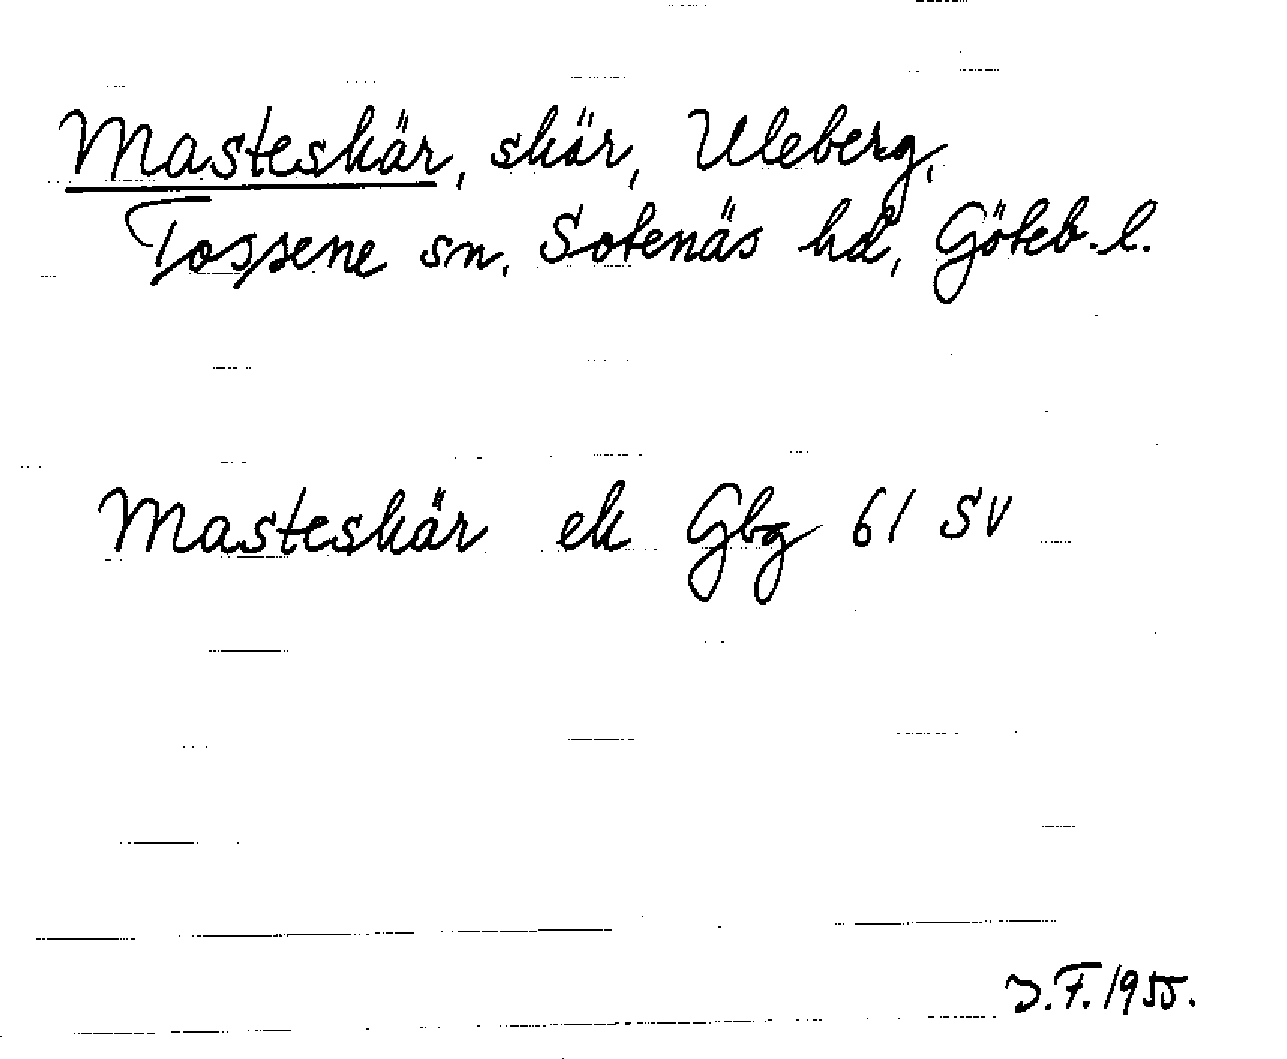 Masteskär, skär, Uleberg,
Tossene sn, Sotenäs hd, Göteb. l.
Masteskär ek Gbg 61 SV
J.F. 1955.